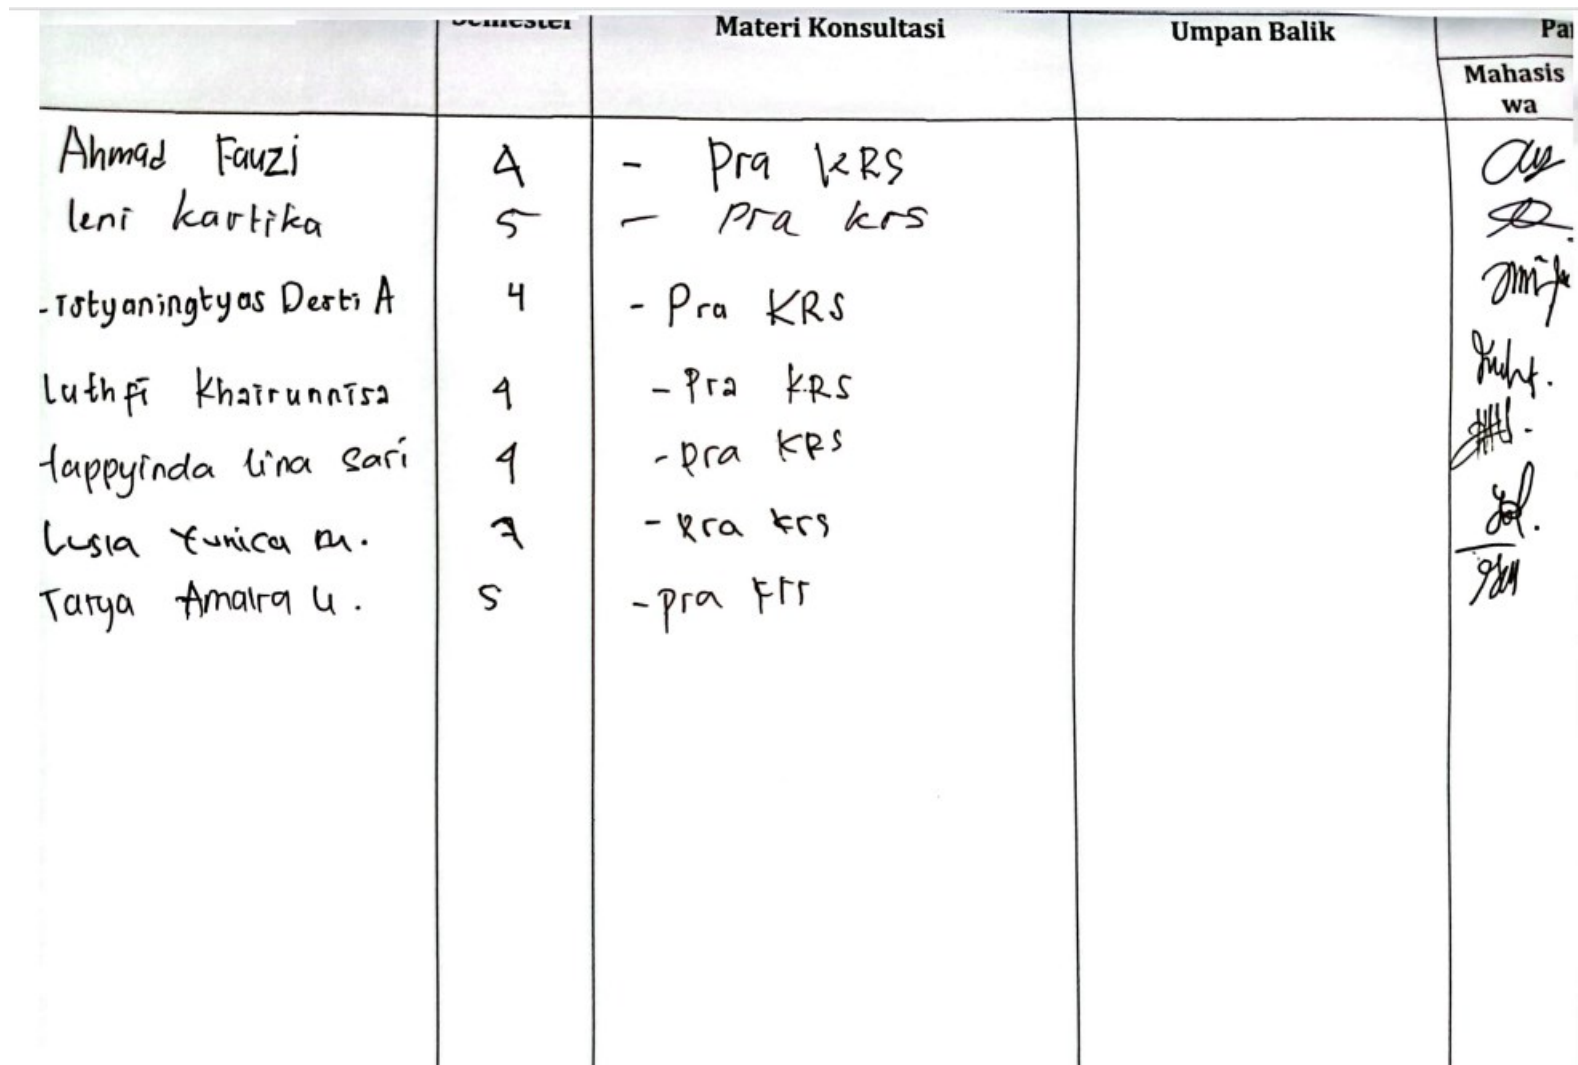 Semester Materi Konsultasi Umpan Balik Pa
Mahasis
wa
Ahmad Fauzi 4 - Pra KRS
leni kartika 5 - Pra krs
Tstyaningtyas Desti A 4 - Pra KRS
Luthfi Khairunnisa 4 - Pra KRS
Happyinda lina sari 4 - pra KRS
Lusia Yunica M. 7 - Pra krs
Tarya Amalra U. 5 - pra krs